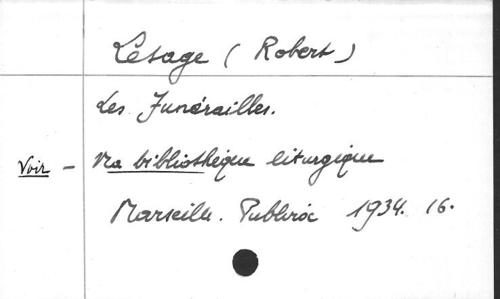 Lesage ( Robert )
Les Funérailles.
Voir - Ma bibliothèque liturgique
Marseille. Publiroc 1934. 16.